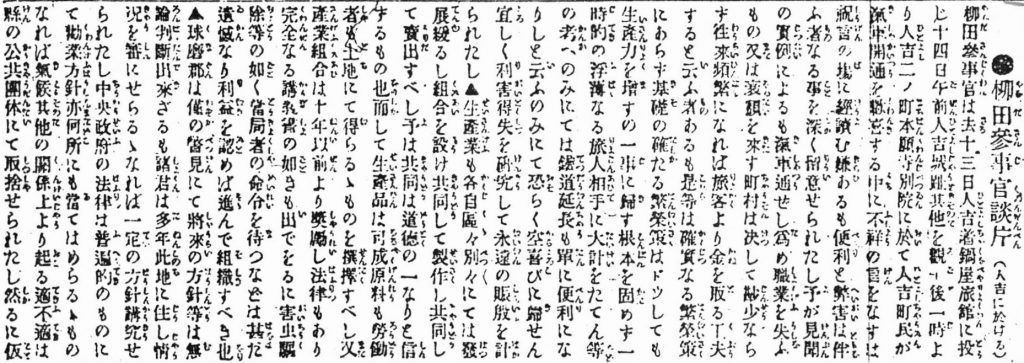 ●柳田參事官談片（人吉に於ける）
柳田參事官は去る十三日人吉着鍋屋旅館に投
じ十四日午前人吉城趾其他を觀、後一時よ
り人吉二ノ町本願寺別院に於て人吉町民が
滊車開通を聽宴する中に不祥の言をなすは
祝言の塲に經讀む嫌あるも便利と弊害は件
ふ者なる事を深く留意せられたし予が見聞
の實例によるも滊車通せし爲め職業を失ふ
もの又は衰額を來す町村は决して尠少なら
ず往來頻繁になれば旅客より金を取る工夫
すると云ふ者あるも是等は確實なる繁榮策
にあらず基礎の確たる繁榮策はドウしても
生產力を增すの一事に歸す根本を固めず一
時的の浮薄なる旅人相手に大計をたてん等
の考へのみにては鐵道延長も單に便利にな
りしと云ふのみにて恐らく空喜びに歸せん
宜しく利害得失を硏究して永遠の賑殷を計
られたし▲生產業も各自區々別々にては發
展緩るし組合を設け共同して製作し共同し
て賣出すべし予は共同は道德の一なりと信
するもの也而して生產品は可成原料も勞働
者も土地にて得らるゝものを撰擇すべし又
產業組合は十年以前より奬勵し法律もあり
完全なる講習の如きも出でをるに害虫驅
除等の如く當局者の命令を待つなどは其だ
遺憾なり利益を認めば進んで組織すべき也
▲球磨郡は僅の瞥見にて將來の方針等は無
論判斷出來ざるも諸君は多年此地に住し情
况を審にせらるゝなれば一定の方針講究せ
られたし中央政府の法律は普遍的のものに
て勸業方針亦何所にも當てはめらるゝもの
なれば氣候其他の關係上より起る適不適は
縣の公共團体にて取捨せられたし然るに仮